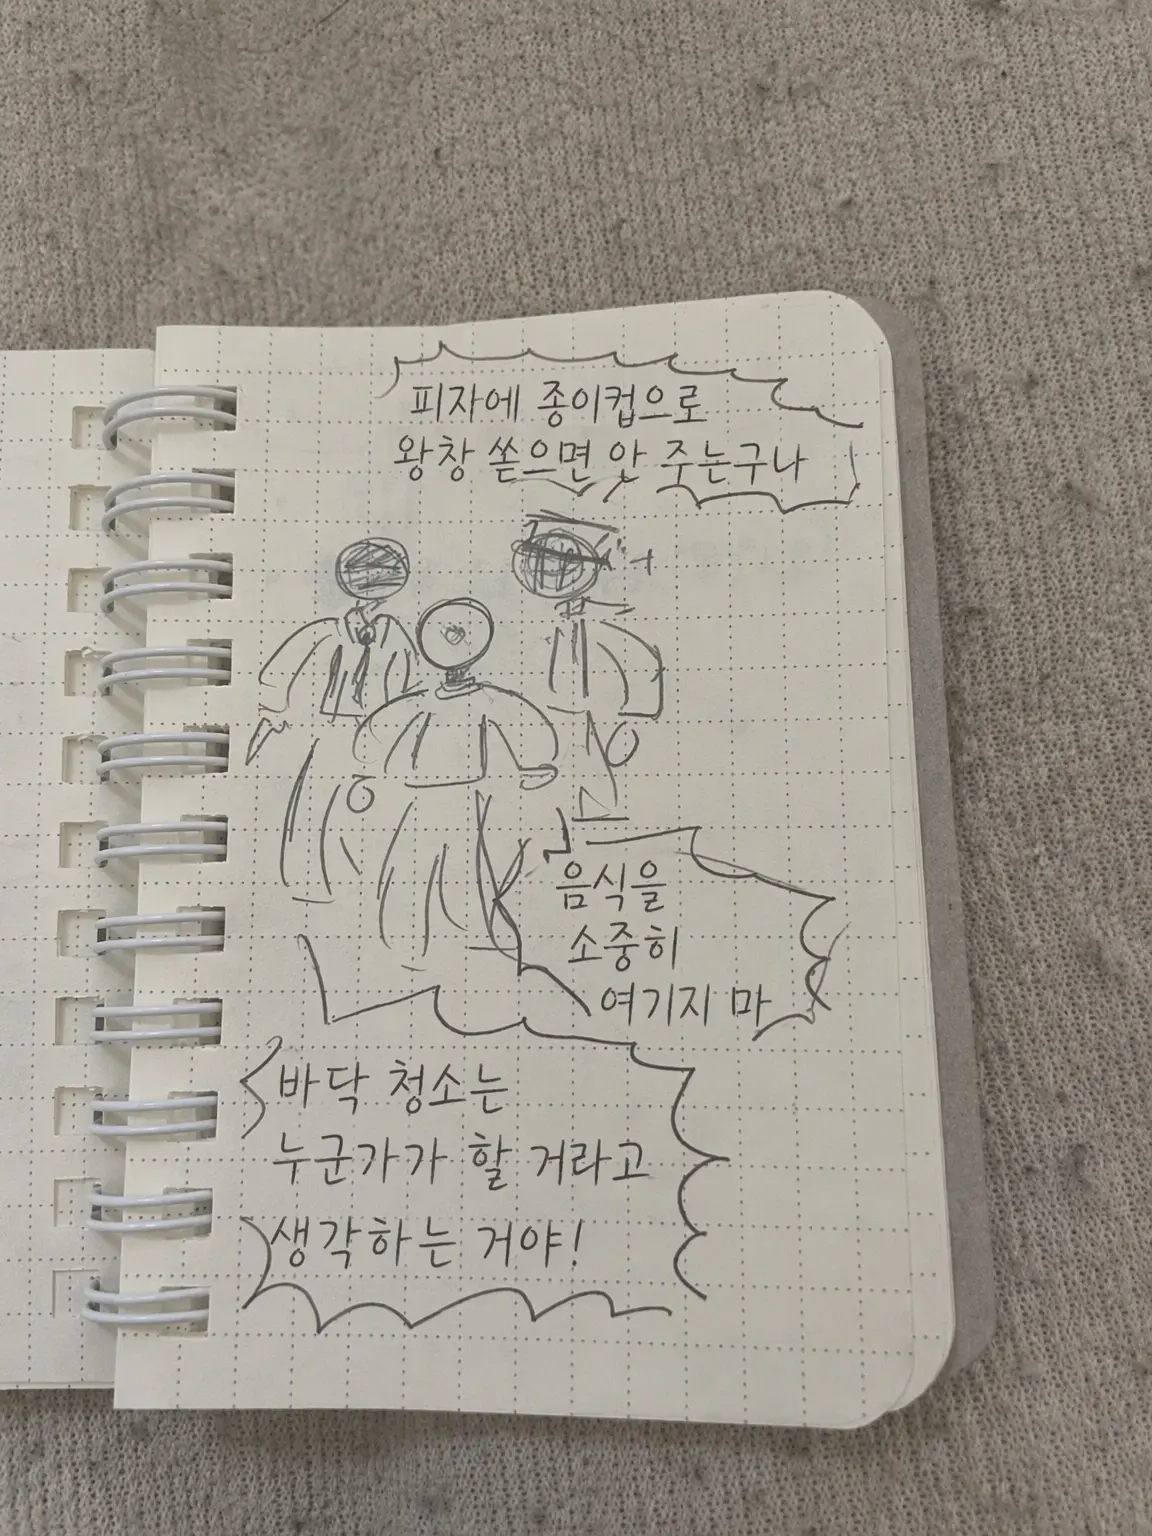 피자에 종이컵으로
왕창 쏟으면 안 주는구나
음식을
소중히
여기지 마
바닥 청소는
누군가가 할 거라고
생각하는 거야!